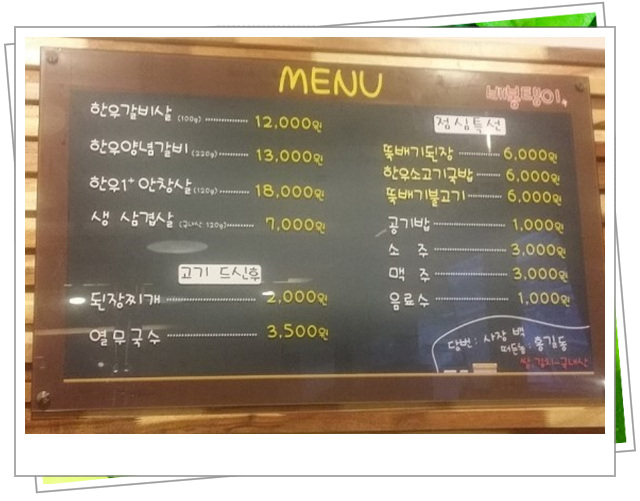 MENU
한우갈비살 (100g) 12,000원
한우양념갈비 (220g) 13,000원
한우1+ 안창살 (120g) 18,000원
생 삼겹살 (국내산 120g) 7,000원
고기 드신후
된장찌개 2,000원
열무국수 3,500원
점심특선
뚝배기된장 6,000원
한우소고기국밥 6,000원
뚝배기불고기 6,000원
공기밥 1,000원
소 주 3,000원
맥 주 3,000원
음료수 1,000원
당번: 사장 백
떠든놈: 홍길동
쌀,김치-국내산